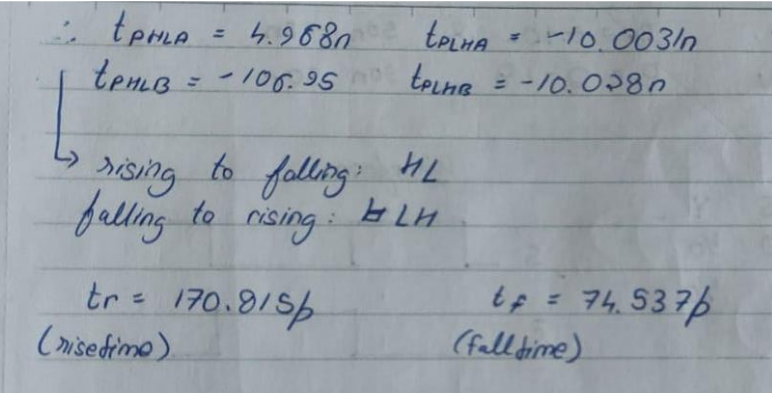 ∴ tPHLA = 4.968n tPLHA = -10.0031n
tPHLB = -106.95 tPLHB = -10.028n
↳ rising to falling: HL
falling to rising: LH
tr = 170.815p tf = 74.537p
(risetime) (falltime)